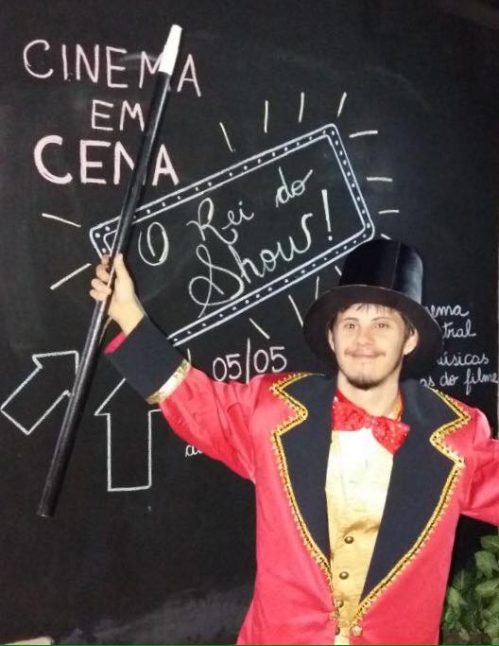 CINEMA
EM
CENA
O Rei do
Show!
05/05
ema
tral
úsicas
as do filme